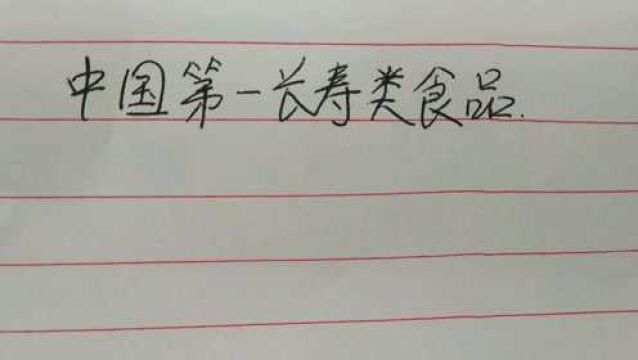 中国第一长寿类食品.